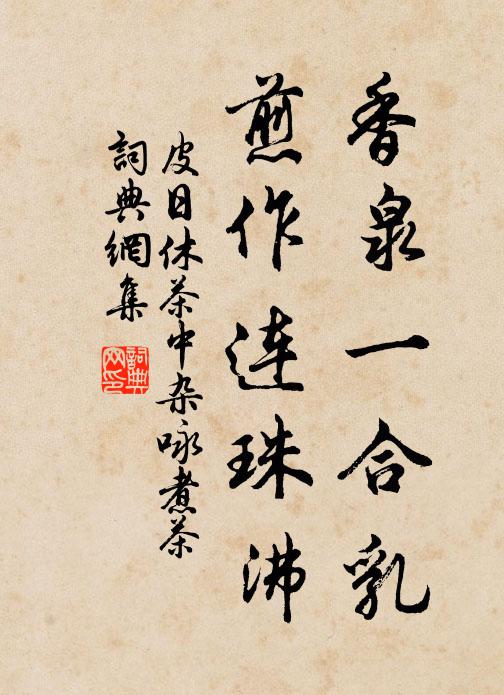 香泉一合乳
煎作连珠沸
皮日休茶中杂咏煮茶
詞典網集
詞典网印